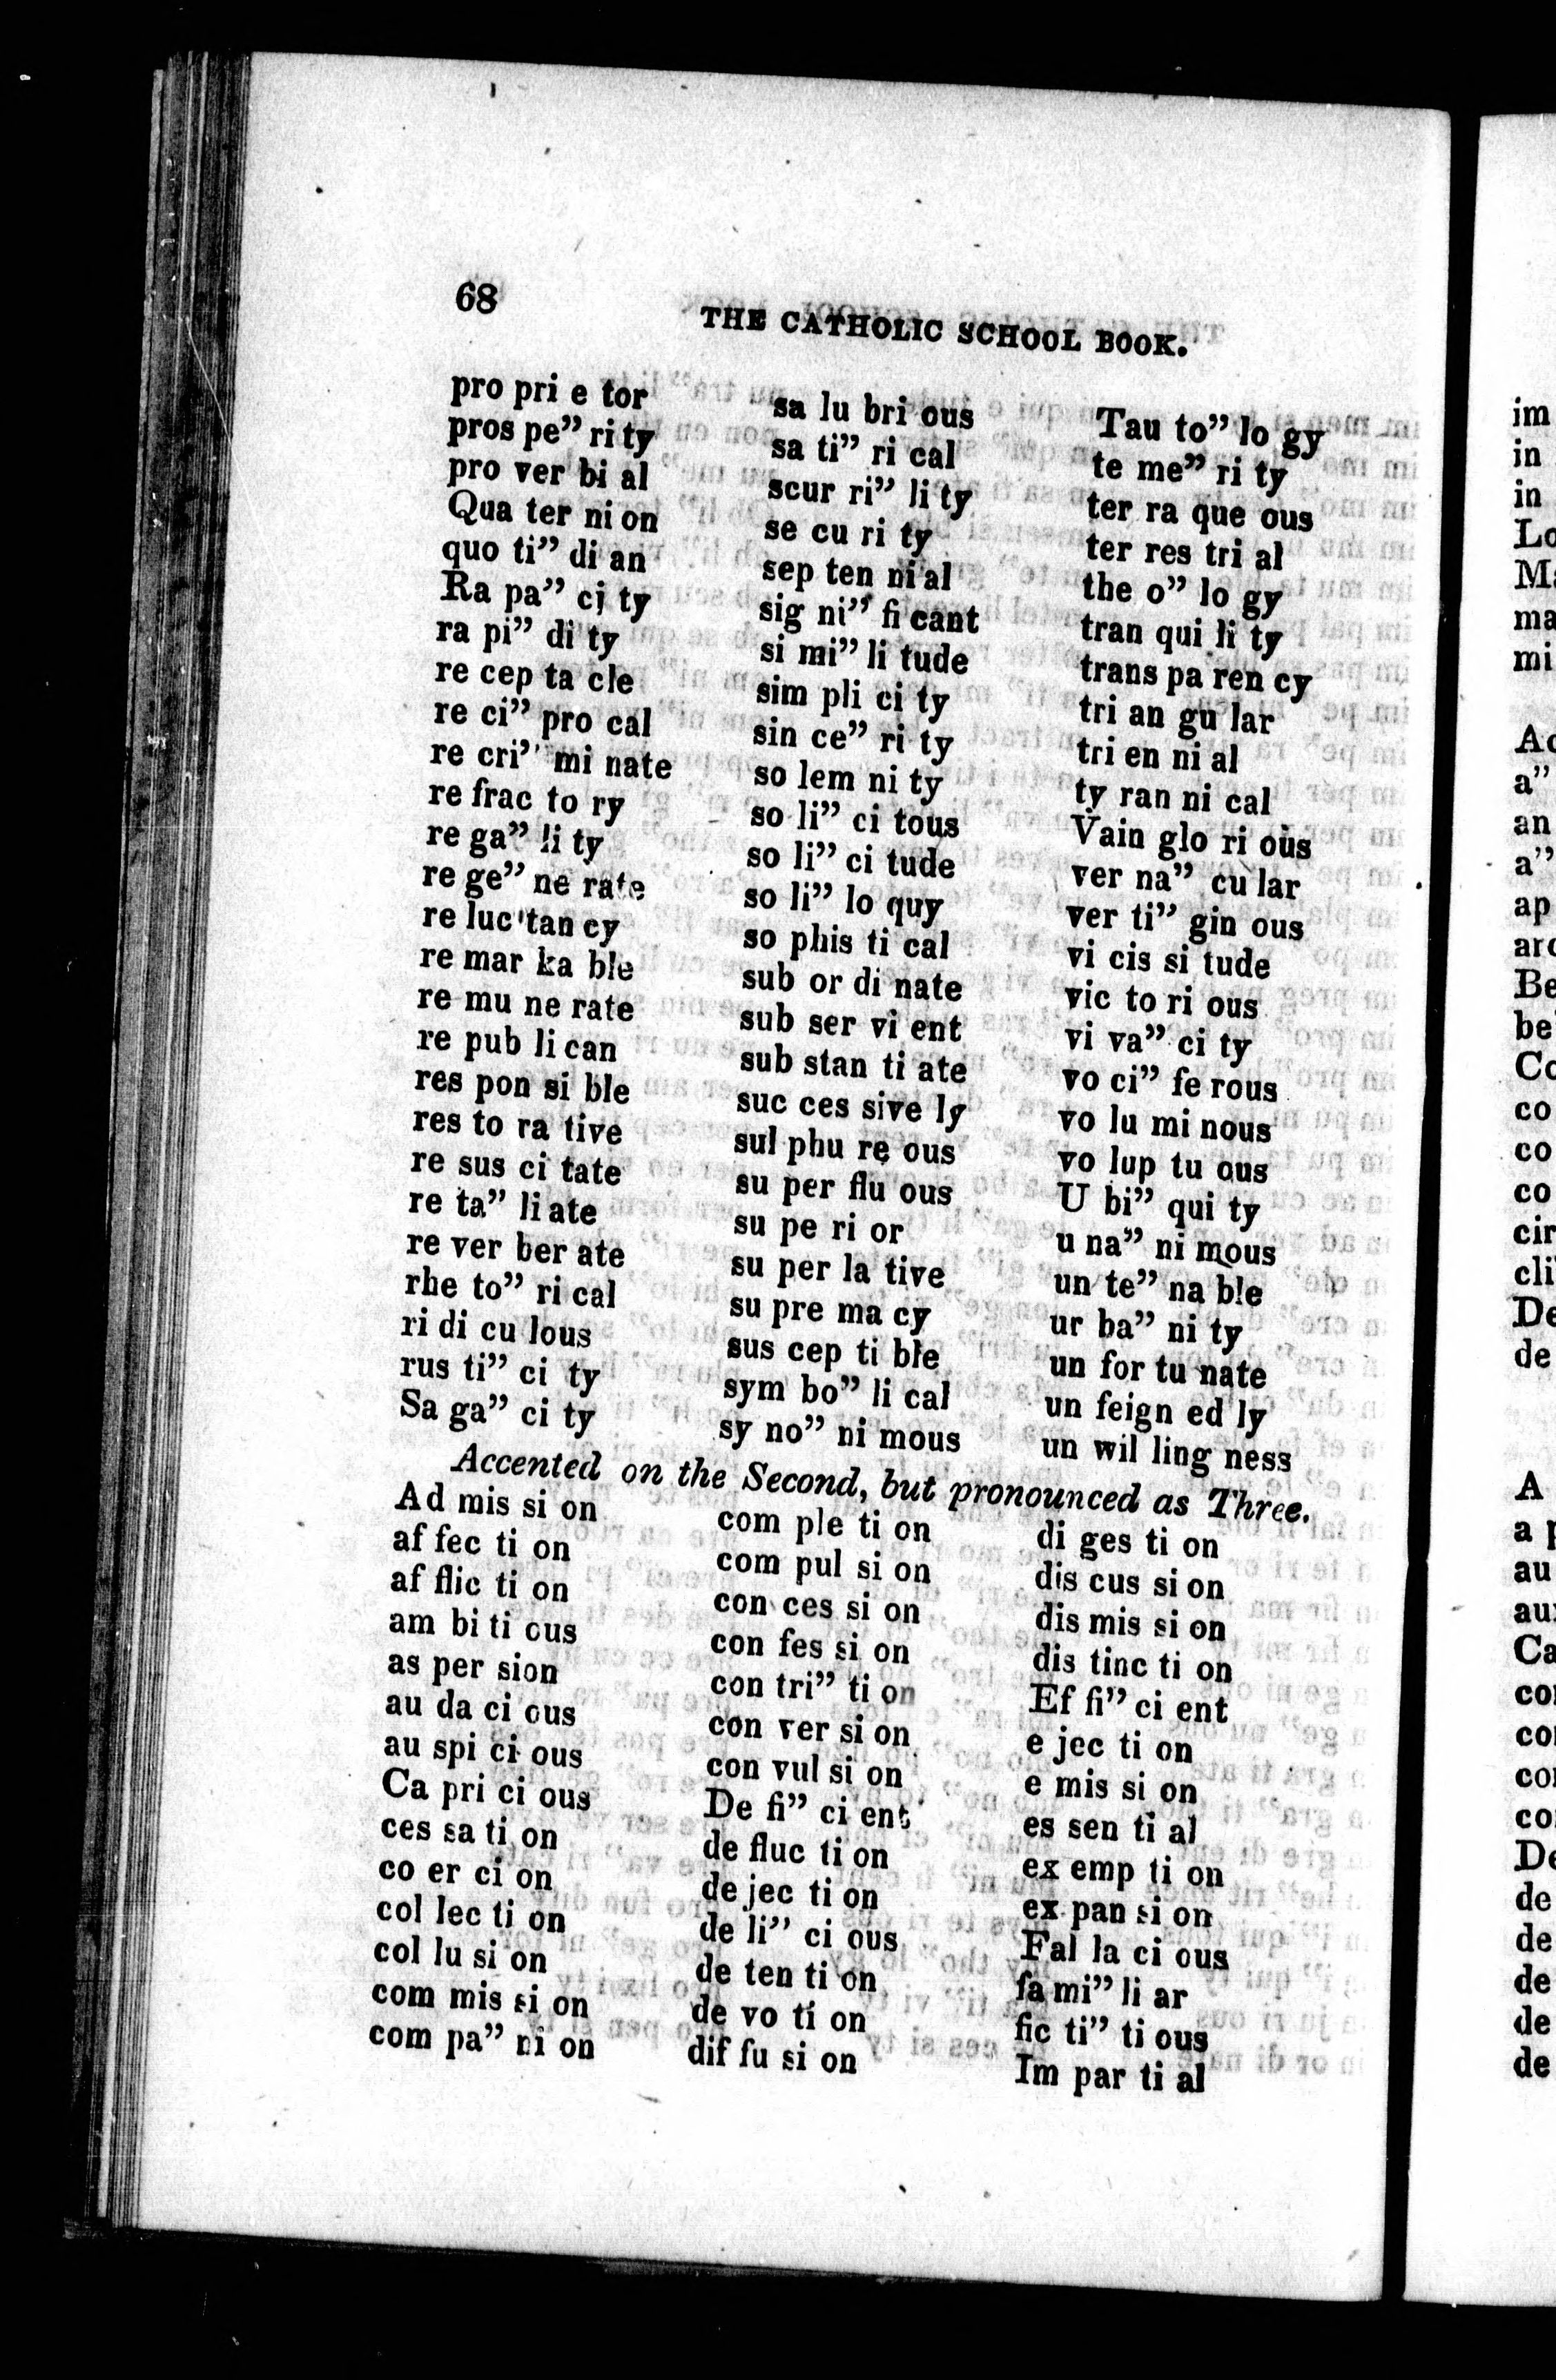 68
THE CATHOLIC SCHOOL BOOK.
pro pri e tor
pros pe” ri ty
pro ver bi al
Qua ter ni on
quo ti” di an
Ra pa” ci ty
ra pi” di ty
re cep ta cle
re ci” pro cal
re cri” mi nate
re frac to ry
re ga” li ty
re ge” ne rate
re luc tan cy
re mar ka ble
re mu ne rate
re pub li can
res pon si ble
res to ra tive
re sus ci tate
re ta” li ate
re ver ber ate
rhe to” ri cal
ri di cu lous
rus ti” ci ty
Sa ga” ci ty
sa lu bri ous
sa ti” ri cal
scur ri” li ty
se cu ri ty
sep ten ni al
sig ni” fi cant
si mi” li tude
sim pli ci ty
sin ce” ri ty
so lem ni ty
so li” ci tous
so li” ci tude
so li” lo quy
so phis ti cal
sub or di nate
sub ser vi ent
sub stan ti ate
suc ces sive ly
sul phu re ous
su per flu ous
su pe ri or
su per la tive
su pre ma cy
sus cep ti ble
sym bo” li cal
sy no” ni mous
Tau to” lo gy
te me” ri ty
ter ra que ous
ter res tri al
the o” lo gy
tran qui li ty
trans pa ren cy
tri an gu lar
tri en ni al
ty ran ni cal
Vain glo ri ous
ver na” cu lar
ver ti” gin ous
vi cis si tude
vic to ri ous
vi va” ci ty
vo ci” fe rous
vo lu mi nous
vo lup tu ous
U bi” qui ty
u na” ni mous
un te” na ble
ur ba” ni ty
un for tu nate
un feign ed ly
un wil ling ness
Accented on the Second, but pronounced as Three.
Ad mis si on
af fec ti on
af flic ti on
am bi ti ous
as per sion
au da ci ous
au spi ci ous
Ca pri ci ous
ces sa ti on
co er ci on
col lec ti on
col lu si on
com mis si on
com pa” ni on
com ple ti on
com pul si on
con ces si on
con fes si on
con tri” ti on
con ver si on
con vul si on
De fi” ci ent
de fluc ti on
de jec ti on
de li” ci ous
de ten ti on
de vo ti on
dif fu si on
di ges ti on
dis cus si on
dis mis si on
dis tinc ti on
Ef fi” ci ent
e jec ti on
e mis si on
es sen ti al
ex emp ti on
ex pan si on
Fal la ci ous
fa mi” li ar
fic ti” ti ous
Im par ti al
im
in
in
Lo
Ma
ma
mi
Ac
a”
an
a”
ap
arc
Be
be
Co
co
co
co
cir
cli
De
de
A
a p
au
au
Ca
co
co
co
co
De
de
de
de
de
de